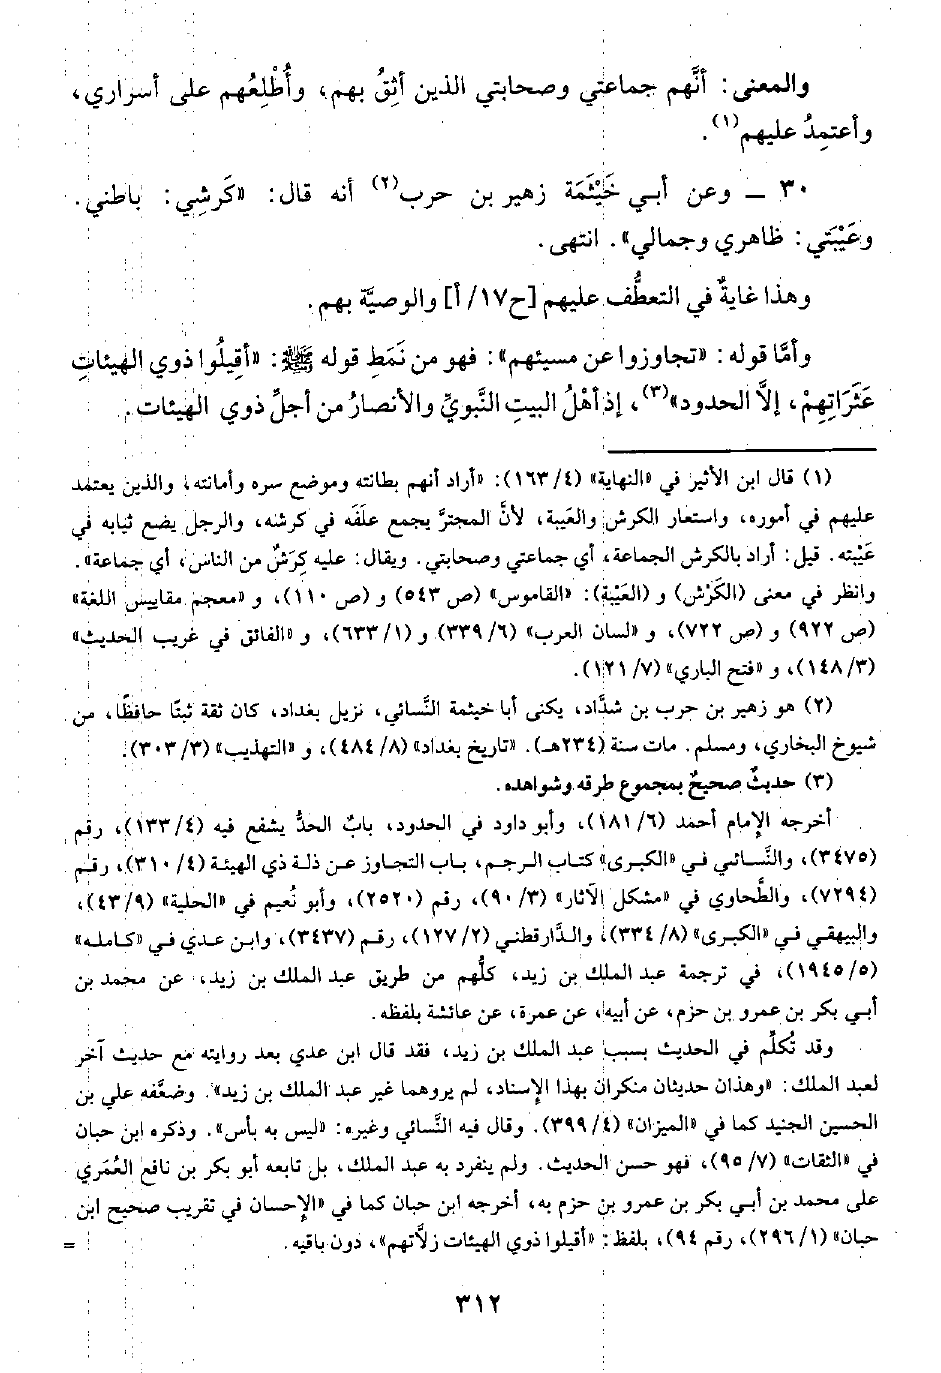 والمعنى: أنَّهم جماعتي وصحابتي الذين أثِقُ بهم، وأُطْلِعُهم على أسراري،
وأعتمِدُ عليهم(١).
٣٠ ــ وعن أبي خَيْثَمَة زهير بن حرب(٢) أنه قال: «كَرشِي: باطني.
وعَيْبَتي: ظاهري وجمالي». انتهى.
وهذا غايةٌ في التعطُّف عليهم [ح١٧/ أ] والوصيَّة بهم.
وأمَّا قوله: «تجاوزوا عن مسيئهم»: فهو من نَمَطِ قوله ﷺ: «أقِيلُوا ذوي الهيئاتِ
عَثَرَاتِهِمْ، إلاَّ الحدود»(٣)، إذ أهْلُ البيتِ النَّبويِّ والأنصارُ من أجلِّ ذوي الهيئات.
(١) قال ابن الأثير في «النهاية» (٤/ ١٦٣): «أراد أنهم بطانته وموضع سره وأمانته، والذين يعتمد
عليهم في أموره، واستعار الكرش والعَيبة، لأنَّ المجترَّ يجمع علَفَه في كرشه، والرجل يضع ثيابه في
عَيْبته. قيل: أراد بالكرش الجماعة، أي جماعتي وصحابتي. ويقال: عليه كِرَشٌ من الناس، أي جماعة».
وانظر في معنى (الكَرْش) و (العَيْبَة): «القاموس» (ص ٥٤٣) و (ص ١١٠)، و «معجم مقاييس اللغة»
(ص ٩٢٢) و (ص ٧٢٢)، و «لسان العرب» (٦/ ٣٣٩) و (١/ ٦٣٣)، و «الفائق في غريب الحديث»
(٣/ ١٤٨)، و «فتح الباري» (٧/ ١٢١).
(٢) هو زهير بن حرب بن شدَّاد، يكنى أبا خيثمة النَّسائي، نزيل بغداد، كان ثقة ثبتًا حافظًا، من
شيوخ البخاري، ومسلم. مات سنة (٢٣٤هـ). «تاريخ بغداد» (٨/ ٤٨٤)، و «التهذيب» (٣/ ٣٠٣).
(٣) حديثٌ صحيحٌ بمجموع طرقه وشواهده.
أخرجه الإمام أحمد (٦/ ١٨١)، وأبو داود في الحدود، بابٌ الحدُّ يشفع فيه (٤/ ١٣٣)، رقم
(٣٤٧٥)، والنَّسائي في «الكبرى» كتاب الرجم، باب التجاوز عن ذلة ذي الهيئة (٤/ ٣١٠)، رقم
(٧٢٩٤)، والطَّحاوي في «مشكل الآثار» (٣/ ٩٠)، رقم (٢٥٢٠)، وأبو نُعيم في «الحلية» (٩/ ٤٣)،
والبيهقي في «الكبرى» (٨/ ٣٣٤)، والدَّارقطني (٢/ ١٢٧)، رقم (٣٤٣٧)، وابن عدي في «كامله»
(٥/ ١٩٤٥)، في ترجمة عبد الملك بن زيد، كلُّهم من طريق عبد الملك بن زيد، عن محمد بن
أبي بكر بن عمرو بن حزم، عن أبيه، عن عمرة، عن عائشة بلفظه.
وقد تُكلِّم في الحديث بسبب عبد الملك بن زيد، فقد قال ابن عدي بعد روايته مع حديث آخر
لعبد الملك: «وهذان حديثان منكران بهذا الإسناد، لم يروهما غير عبد الملك بن زيد». وضعَّفه علي بن
الحسين الجنيد كما في «الميزان» (٤/ ٣٩٩). وقال فيه النَّسائي وغيره: «ليس به بأس». وذكره ابن حبان
في «الثقات» (٧/ ٩٥)، فهو حسن الحديث. ولم ينفرد به عبد الملك، بل تابعه أبو بكر بن نافع العُمَري
على محمد بن أبي بكر بن عمرو بن حزم به، أخرجه ابن حبان كما في «الإحسان في تقريب صحيح ابن
حبان» (١/ ٢٩٦)، رقم ٩٤)، بلفظ: «أقيلوا ذوي الهيئات زلاَّتهم»، دون باقيه. =
٣١٢